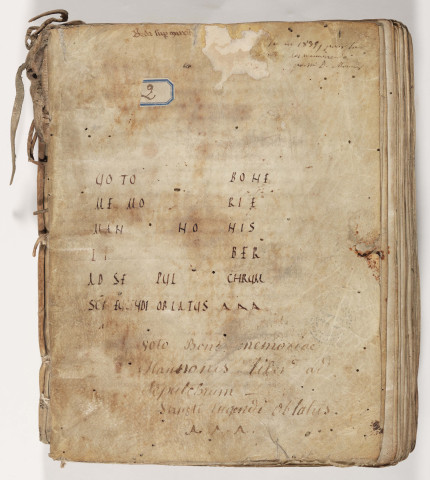 2
VOTO BONE
MEMO RIE
MAN NO NIS
LI BER
AD SE PUL CHRUM
SCI EUGENDI OBLATUS AAA
Voto Bonae memoriae
Mannonis liber ad
Sepulchrum
Sancti Eugendi oblatus.
A A A